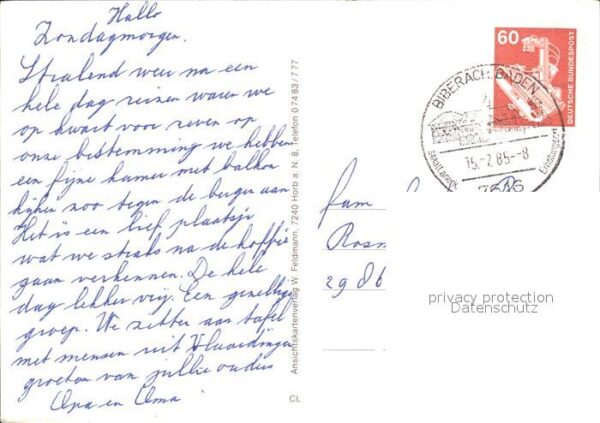 Hallo
Zondagmorgen.
Stralend weer na een
hele dag reizen waren we
op kwart voor zeven op
onze bestemming we hebben
een fijne kamer met balkon
kijken zoo tegen de bergen aan
Het is een lief plaatsje
wat we straks na de koffie
gaan verkennen. De hele
dag lekker vrij. Een gezellige
groep. We zitten aan tafel
met mensen uit Vlaardingen
groeten van jullie ouders
Opa en Oma
Ansichtkartenverlag W. Feldmann, 7240 Horb a. N. 8. Telefon 0 74 83 / 7 77
CL
60
DEUTSCHE BUNDESPOST
BIBERACH, BADEN
15.-7.85.-8
7616
Erholungsort
fam
Rosm
2986
privacy protection
Datenschutz